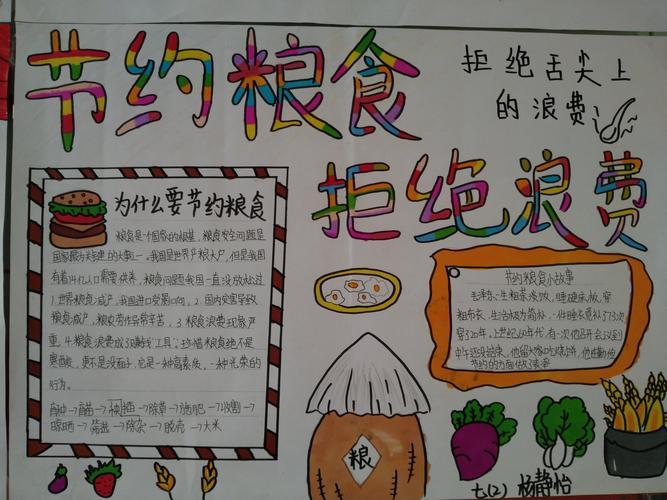 节约粮食
拒绝舌尖上
的浪费
拒绝浪费
为什么要节约粮食
粮食是一个国家的根基,粮食安全问题是
国家最为关键的大事之一。我国是世界产粮大户,但是我国
有着14亿人口需要供养,粮食问题我国一直没放松过
1.世界粮食减产,我国进口受影响,2.国内灾害导致
粮食减产,粮农劳作异常辛苦,3.粮食浪费现象严
重。4.粮食浪费成工具;珍惜粮食绝不是
寒酸,更不是没面子,它是一种高素质、一种光荣的
行为。
育种→育苗→插→除草→施肥→收割→
晾晒→筛选→除杂→脱壳→大米
节约粮食小故事
毛泽东、生粗茶淡饭,睡硬床板,穿
粗布衣,生活极为简朴,一件睡衣竟补了73次
穿了20年。上世纪60年代,有一次他召开会议到
中午还没结束,他留大家吃
节约的方面做了表率
粮
七(2) 杨静怡